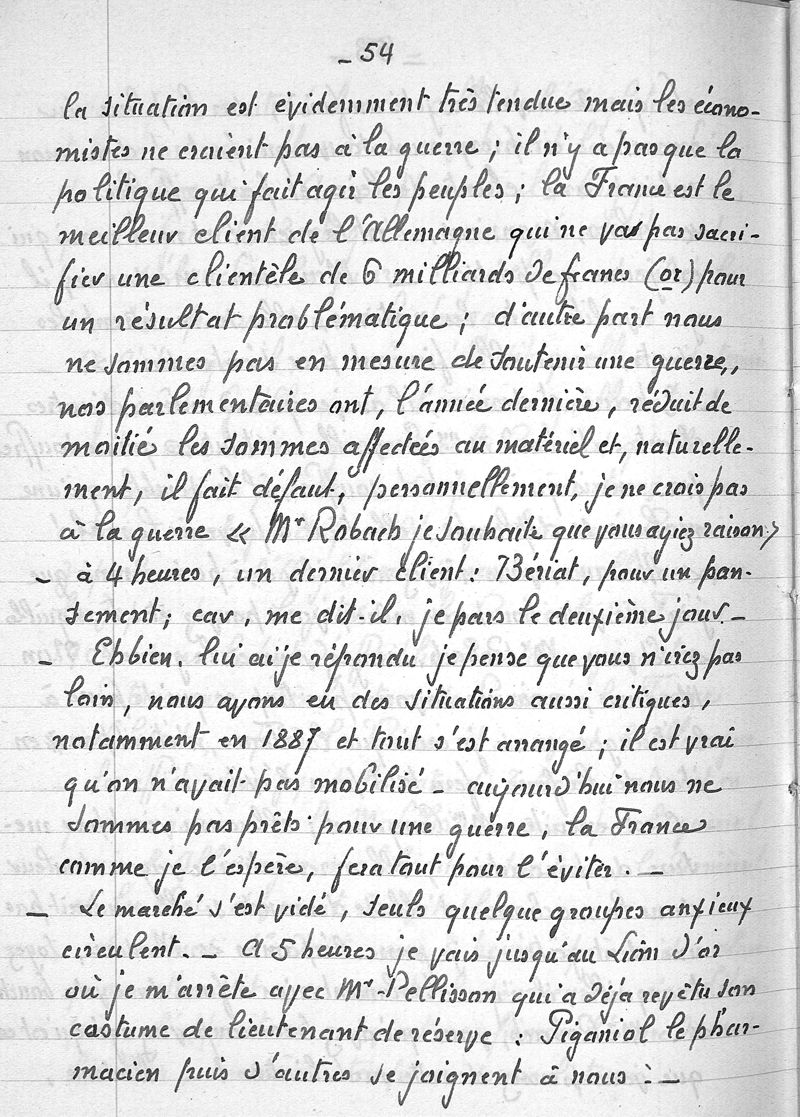 - 54
la situation est évidemment très tendue mais les écono-
mistes ne craient pas à la guerre ; il n'y a pas que la
politique qui fait agir les peuples ; la France est le
meilleur client de l'Allemagne qui ne va pas sacri-
fier une clientèle de 6 milliards de francs (or) pour
un résultat problématique ; d'autre part nous
ne sommes pas en mesure de soutenir une guerre,,
nos parlementaires ont, l'année dernière, réduit de
moitié les sommes affectées au matériel et, naturelle-
ment, il fait défaut, personnellement, je ne crois pas
à la guerre « Mr Robach je souhaite que vous ayiez raison »
- à 4 heures, un dernier client : Bériat, pour un pan-
sement ; car, me dit-il, je pars le deuxième jour -
- Eh bien, lui ai je répondu je pense que vous n'irez pas
loin, nous avons eu des situations aussi critiques,
notamment en 1887 et tout s'est arrangé ; il est vrai
qu'on n'avait pas mobilisé - aujourd'hui nous ne
sommes pas prêts pour une guerre, la France
comme je l'espère, fera tout pour l'éviter. -
- Le marché s'est vidé, seuls quelque groupes anxieux
circulent. - A 5 heures je vais jusqu'au Lion d'or
où je m'arrête avec Mr Pellisson qui a déja revêtu son
costume de lieutenant de réserve : Piganiol le phar-
macien puis d'autres se joignent à nous : -